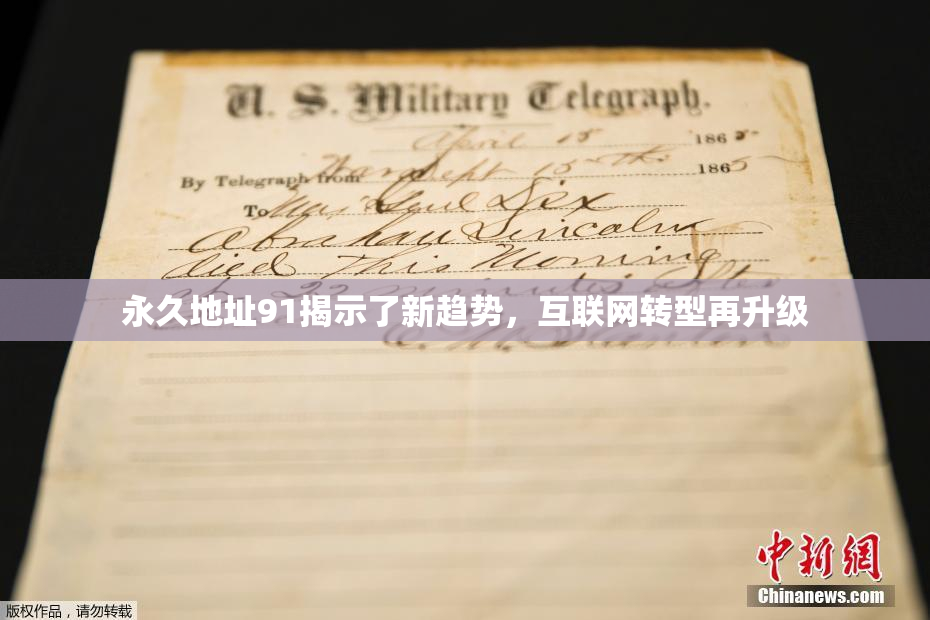 U. S. Military Telegraph.
April 15 1865.
By Telegraph from War Dept 15th 1865
To Maj Genl Dix
Abraham Lincoln
died This Morning
at 22 minutes after
永久地址91揭示了新趋势，互联网转型再升级
Stanton
中新网
Chinanews.com
版权作品，请勿转载